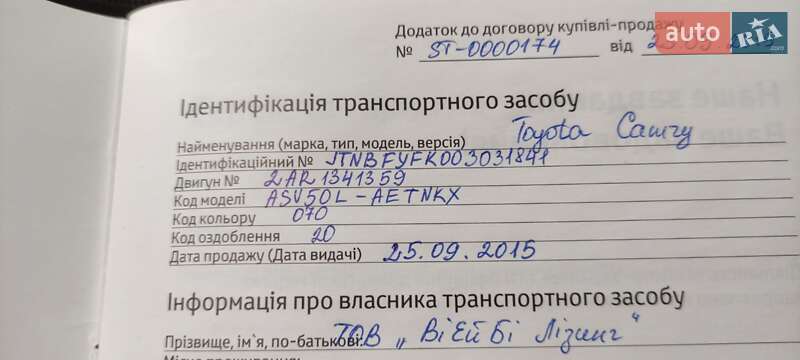 Додаток до договору купівлі-продажу
№ ST-0000174 від
auto RIA .com
Ідентифікація транспортного засобу
Найменування (марка, тип, модель, версія) Toyota Camry
Ідентифікаційний № JTNBFYFK003031841
Двигун № 2AR1341359
Код моделі ASV50L-AETNKX
Код кольору 070
Код оздоблення 20
Дата продажу (Дата видачі) 25.09.2015
Інформація про власника транспортного засобу
Прізвище, ім`я, по-батькові: ТОВ „ВіЕйБі Лізинг"